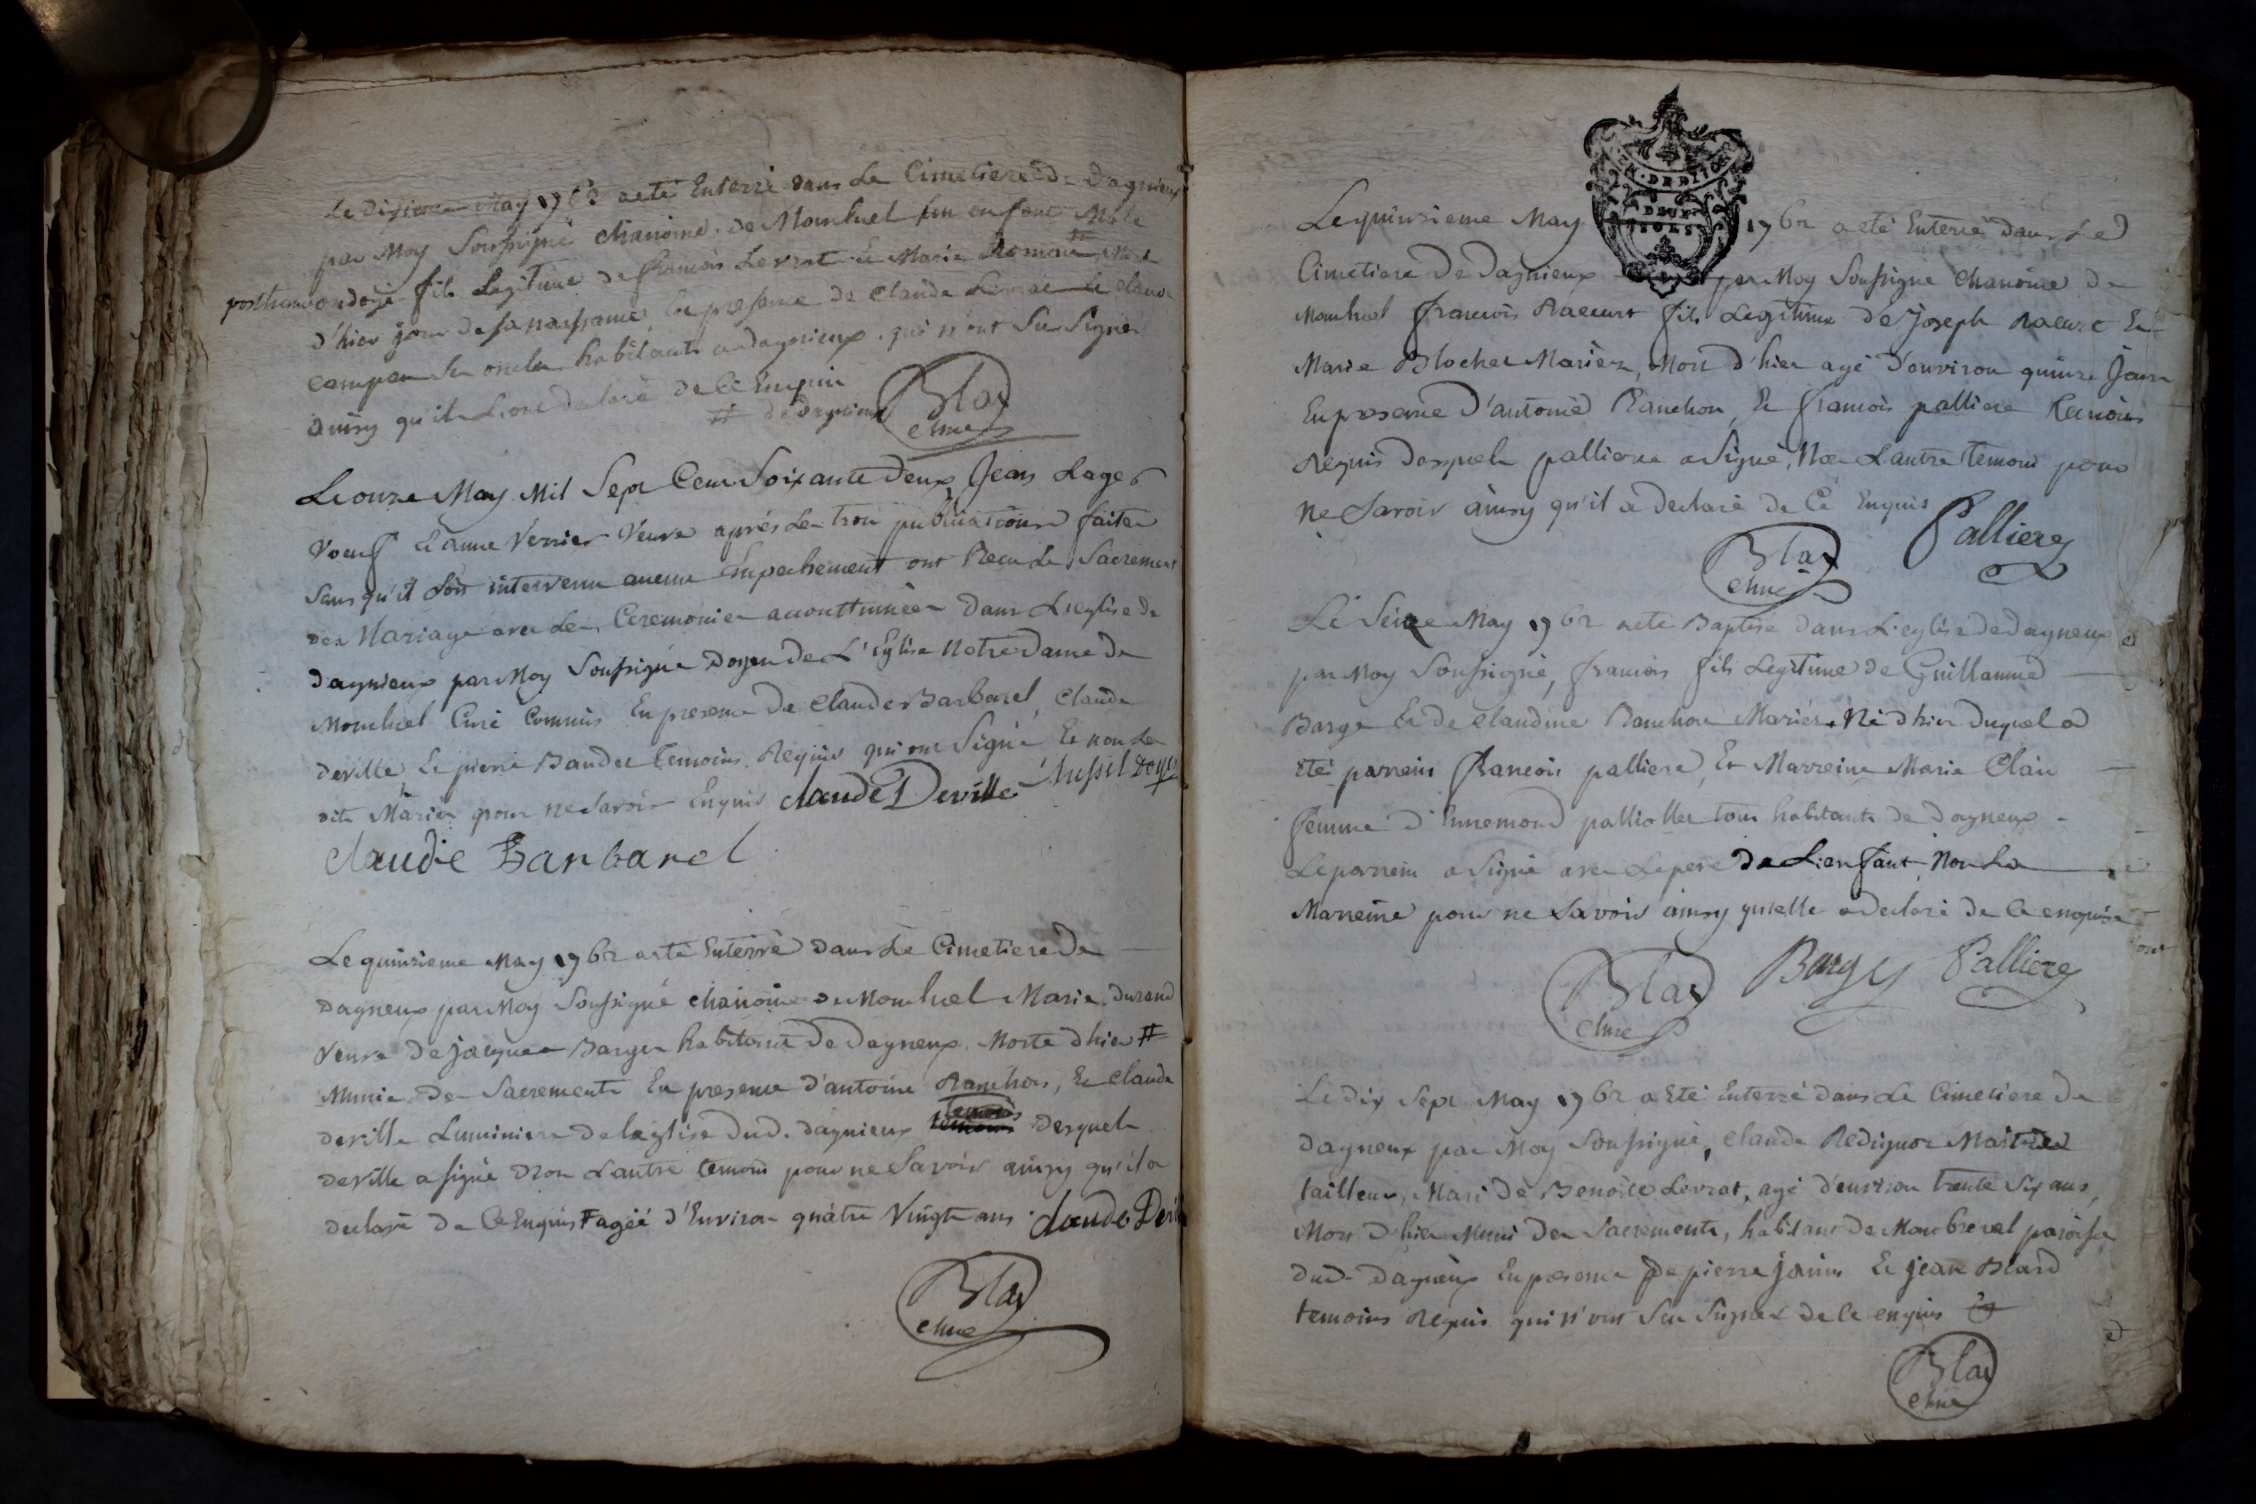 Le dixieme May 1762 a eté Enterré dans Le Cimetiere de dagnieux
par Moy Soussigné chanoine de Monluel un enfant Male
posthume ondoyé fils Legitime de francois Levrat et Marie Mort
d'hier jour de sa naissance, En presence de Claude Levrat et claude
oncles habitants a dagnieux qui n'ont Seu Signer
ainsy qu'ils L'ont declaré de Ce Enquis
# de dagnieux Blas
chne
Le onze May Mil Sept Cent Soixante deux Jean Lages
Voeuf et anne Verrier Veuve aprés Les trois publications faites
Sans qu'il Soit intervenu aucun Empechement ont Recu Le Sacrement
de Mariage avec Les Ceremonies accouttumées dans L'eglise de
dagnieux par Moy Soussigné doyen de L'Eglise Notre Dame de
Monluel Curé Commis En presence de Claude Barbarel, Claude
deville Et pierre Baudet temoins Requis qui ont Signé Et non Les
dits Mariés pour ne Savoir Enquis claude Deville doyen
claude Barbarel
Le quinzieme May 1762 a eté Enterré dans Le Cimetiere de
dagneux par Moy Soussigné chanoine de Monluel Marie durand
Veuve de jacques Barge habitante de dagneux. Morte d'hier #
Munie des Sacrements En presence d'antoine Ranchon, Et claude
deville Luminier de leglise dud. dagnieux temoins desquels
deville a signé Non L'autre temoin pour ne Savoir ainsy qu'il a
declaré de Ce Enquis # agée d'Environ quatre Vingt ans claude Devil
Blas
chne
Le quinzieme May 1762 a eté Enterré dans Le
DEUX
Cimetiere de dagnieux par Moy Soussigné chanoine de
Monluel francois Racurt fils Legitime de Joseph Racurt Et
Marie Blochet Mariés, Mort d'hier agé d'environ quinze Jours
En presence d'antoine Ranchon, Et francois palliere temoins
Requis desquels palliere a Signé, Non L'autre temoin pour
Ne Savoir ainsy qu'il a declaré de Ce Enquis Palliere
Blas
chne
Le Seize May 1762 a eté Baptisé dans L'eglise de dagneux
par Moy Soussigné, francois fils Legitime de Guillaume
Barge Et de claudine Ranchon Mariés. Né d'hier duquel a
eté parrein francois palliere, Et Marreine Marie Clair
femme d'Ennemond palliollet tous habitants de dagneux
Le parrein a Signé avec Le pere de L'enfant, Non La
Marreine pour ne Savoir ainsy qu'elle a declaré de Ce enquise
Blas Barge Palliere
chne
Le dix Sept May 1762 a Eté Enterré dans Le Cimetiere de
dagneux par Moy Soussigné, claude Redignot Maitre
tailleur, Mari de Benoite Levrat, agé d'environ trente Six ans,
Mort d'hier Muni des Sacrements, habitant de Monbrevel paroisse
dud. dagneux En presence de pierre janin Et jean Biard
temoins Requis qui n'ont Seu Signer de Ce enquis
Blas
chne